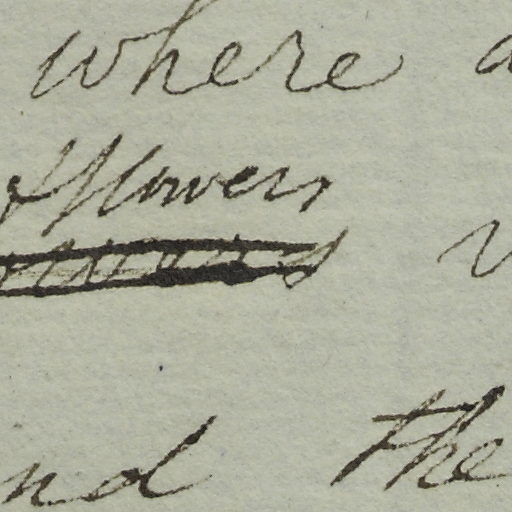 where a
of flowers
nd the